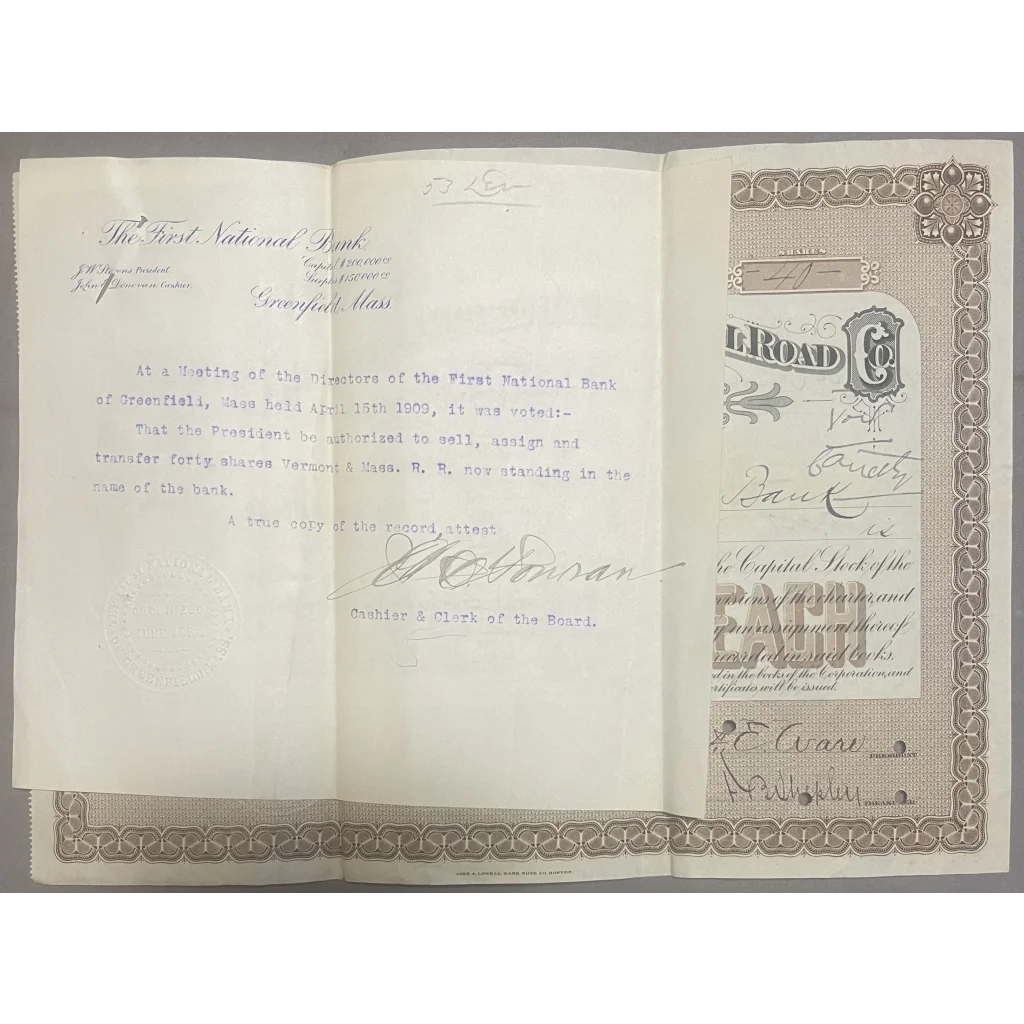 The First National Bank
Capital $200,000.00
J.W. Stevens President.
Surplus $150,000.00
John Donovan Cashier.
Greenfield, Mass.
At a Meeting of the Directors of the First National Bank
of Greenfield, Mass held April 15th 1909, it was voted:-
That the President be authorized to sell, assign and
transfer forty shares Vermont & Mass. R. R. now standing in the
name of the bank.
A true copy of the record attest
Cashier & Clerk of the Board.
SHARES
-40-
LROAD CO.
Bank
is
he Capital Stock of the
visions of the charter, and
EACH
an assignment thereof
recorded in said books.
d in the books of the Corporation, and
rtificates, will be issued.
E. Ware
PRESIDENT
Shepley
TREASURER
JOHN A. LOWELL BANK NOTE CO. BOSTON.